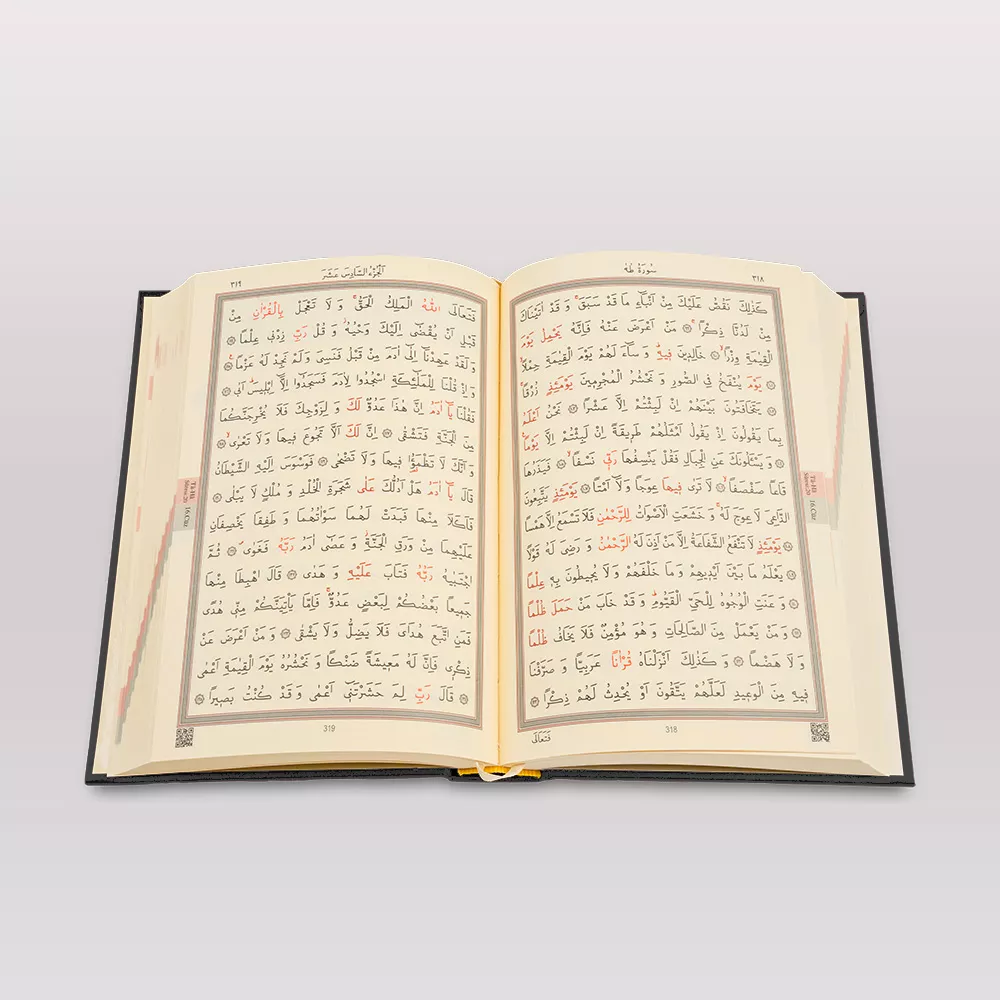 سُورَةُ طٰهٰ
٣١٨
كَذٰلِكَ نَقُصُّ عَلَيْكَ مِنْ اَنْبَٓاءِ مَا قَدْ سَبَقَۚ وَ قَدْ اٰتَيْنَاكَ
مِنْ لَدُنَّا ذِكْرًاۚ ﴿٩٩﴾ مَنْ اَعْرَضَ عَنْهُ فَاِنَّهُ يَحْمِلُ يَوْمَ
الْقِيٰمَةِ وِزْرًاۙ ﴿١٠٠﴾ خَالِدِينَ فِيهِۜ وَ سَٓاءَ لَهُمْ يَوْمَ الْقِيٰمَةِ حِمْلًاۙ
﴿١٠١﴾ يَوْمَ يُنْفَخُ فِي الصُّورِ وَ نَحْشُرُ الْمُجْرِمِينَ يَوْمَئِذٍ زُرْقًاۚ
﴿١٠٢﴾ يَتَخَافَتُونَ بَيْنَهُمْ اِنْ لَبِثْتُمْ اِلَّا عَشْرًا ﴿١٠٣﴾ نَحْنُ اَعْلَمُ
بِمَا يَقُولُونَ اِذْ يَقُولُ اَمْثَلُهُمْ طَرِيقَةً اِنْ لَبِثْتُمْ اِلَّا يَوْمًا۟
﴿١٠٤﴾ وَ يَسْـَٔلُونَكَ عَنِ الْجِبَالِ فَقُلْ يَنْسِفُهَا رَبِّي نَسْفًاۙ ﴿١٠٥﴾ فَيَذَرُهَا
قَاعًا صَفْصَفًاۙ ﴿١٠٦﴾ لَا تَرٰى فِيهَا عِوَجًا وَ لَٓا اَمْتًاۜ ﴿١٠٧﴾ يَوْمَئِذٍ يَتَّبِعُونَ
الدَّاعِيَ لَا عِوَجَ لَهُۚ وَ خَشَعَتِ الْاَصْوَاتُ لِلرَّحْمٰنِ فَلَا تَسْمَعُ اِلَّا هَمْسًا
﴿١٠٨﴾ يَوْمَئِذٍ لَا تَنْفَعُ الشَّفَاعَةُ اِلَّا مَنْ اَذِنَ لَهُ الرَّحْمٰنُ وَ رَضِيَ لَهُ قَوْلًا
﴿١٠٩﴾ يَعْلَمُ مَا بَيْنَ اَيْدِيهِمْ وَ مَا خَلْفَهُمْ وَ لَا يُحِيطُونَ بِهِ عِلْمًا
﴿١١٠﴾ وَ عَنَتِ الْوُجُوهُ لِلْحَيِّ الْقَيُّومِۜ وَ قَدْ خَابَ مَنْ حَمَلَ ظُلْمًا
﴿١١١﴾ وَ مَنْ يَعْمَلْ مِنَ الصَّالِحَاتِ وَ هُوَ مُؤْمِنٌ فَلَا يَخَافُ ظُلْمًا
وَ لَا هَضْمًا ﴿١١٢﴾ وَ كَذٰلِكَ اَنْزَلْنَاهُ قُرْاٰنًا عَرَبِيًّا وَ صَرَّفْنَا
فِيهِ مِنَ الْوَعِيدِ لَعَلَّهُمْ يَتَّقُونَ اَوْ يُحْدِثُ لَهُمْ ذِكْرًا ﴿١١٣﴾
فَتَعَالَى
318
Tâ-Hâ
Sûresi:20
16.Cüz
اَلْجُزْءُ السَّادِسَ عَشَرَ
٣١٩
فَتَعَالَى اللّٰهُ الْمَلِكُ الْحَقُّۚ وَ لَا تَعْجَلْ بِالْقُرْاٰنِ مِنْ
قَبْلِ اَنْ يُقْضٰٓى اِلَيْكَ وَحْيُهُۘ وَ قُلْ رَبِّ زِدْنِي عِلْمًا ﴿١١٤﴾
وَ لَقَدْ عَهِدْنَٓا اِلٰٓى اٰدَمَ مِنْ قَبْلُ فَنَسِيَ وَ لَمْ نَجِدْ لَهُ عَزْمًا۟ ﴿١١٥﴾
وَ اِذْ قُلْنَا لِلْمَلٰٓئِكَةِ اسْجُدُوا لِاٰدَمَ فَسَجَدُٓوا اِلَّٓا اِبْلِيسَۜ اَبٰى ﴿١١٦﴾
فَقُلْنَا يَٓا اٰدَمُ اِنَّ هٰذَا عَدُوٌّ لَكَ وَ لِزَوْجِكَ فَلَا يُخْرِجَنَّكُمَا
مِنَ الْجَنَّةِ فَتَشْقٰى ﴿١١٧﴾ اِنَّ لَكَ اَلَّا تَجُوعَ فِيهَا وَ لَا تَعْرٰىۙ ﴿١١٨﴾
وَ اَنَّكَ لَا تَظْمَؤُ۬ا فِيهَا وَ لَا تَضْحٰى ﴿١١٩﴾ فَوَسْوَسَ اِلَيْهِ الشَّيْطَانُ
قَالَ يَٓا اٰدَمُ هَلْ اَدُلُّكَ عَلٰى شَجَرَةِ الْخُلْدِ وَ مُلْكٍ لَا يَبْلٰى ﴿١٢٠﴾
فَاَكَلَا مِنْهَا فَبَدَتْ لَهُمَا سَوْاٰتُهُمَا وَ طَفِقَا يَخْصِفَانِ
عَلَيْهِمَا مِنْ وَرَقِ الْجَنَّةِۘ وَ عَصٰٓى اٰدَمُ رَبَّهُ فَغَوٰىۖ ﴿١٢١﴾ ثُمَّ
اجْتَبٰيهُ رَبُّهُ فَتَابَ عَلَيْهِ وَ هَدٰى ﴿١٢٢﴾ قَالَ اهْبِطَا مِنْهَا
جَمِيعًا بَعْضُكُمْ لِبَعْضٍ عَدُوٌّۚ فَاِمَّا يَأْتِيَنَّكُمْ مِنِّي هُدًى
فَمَنِ اتَّبَعَ هُدَايَ فَلَا يَضِلُّ وَ لَا يَشْقٰى ﴿١٢٣﴾ وَ مَنْ اَعْرَضَ عَنْ
ذِكْرِي فَاِنَّ لَهُ مَعِيشَةً ضَنْكًا وَ نَحْشُرُهُ يَوْمَ الْقِيٰمَةِ اَعْمٰى
﴿١٢٤﴾ قَالَ رَبِّ لِمَ حَشَرْتَنِٓي اَعْمٰى وَ قَدْ كُنْتُ بَصِيرًا ﴿١٢٥﴾
319
Tâ-Hâ
Sûresi:20
16.Cüz